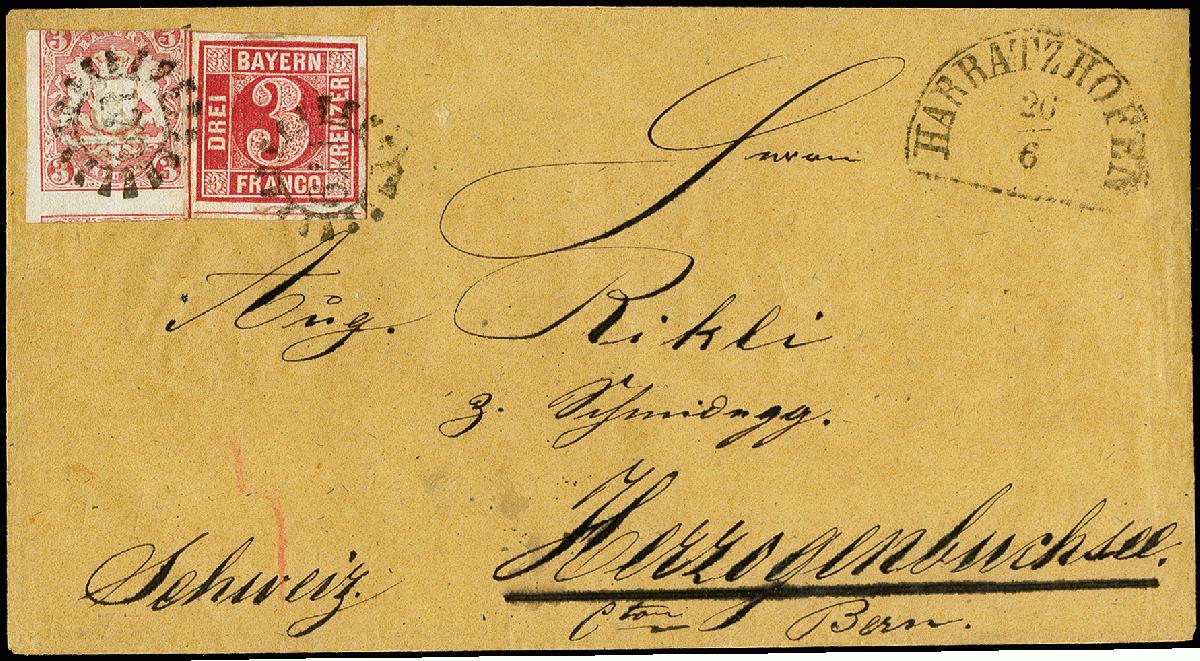 3 3
BAYERN
DREI
3
KREUZER
FRANCO
3 3
HARBATZHOFEN
26
6
Herrn
Aug. Rikli
z. Schmidegg.
Herzogenbuchsee.
Schweiz.
Cton Bern.